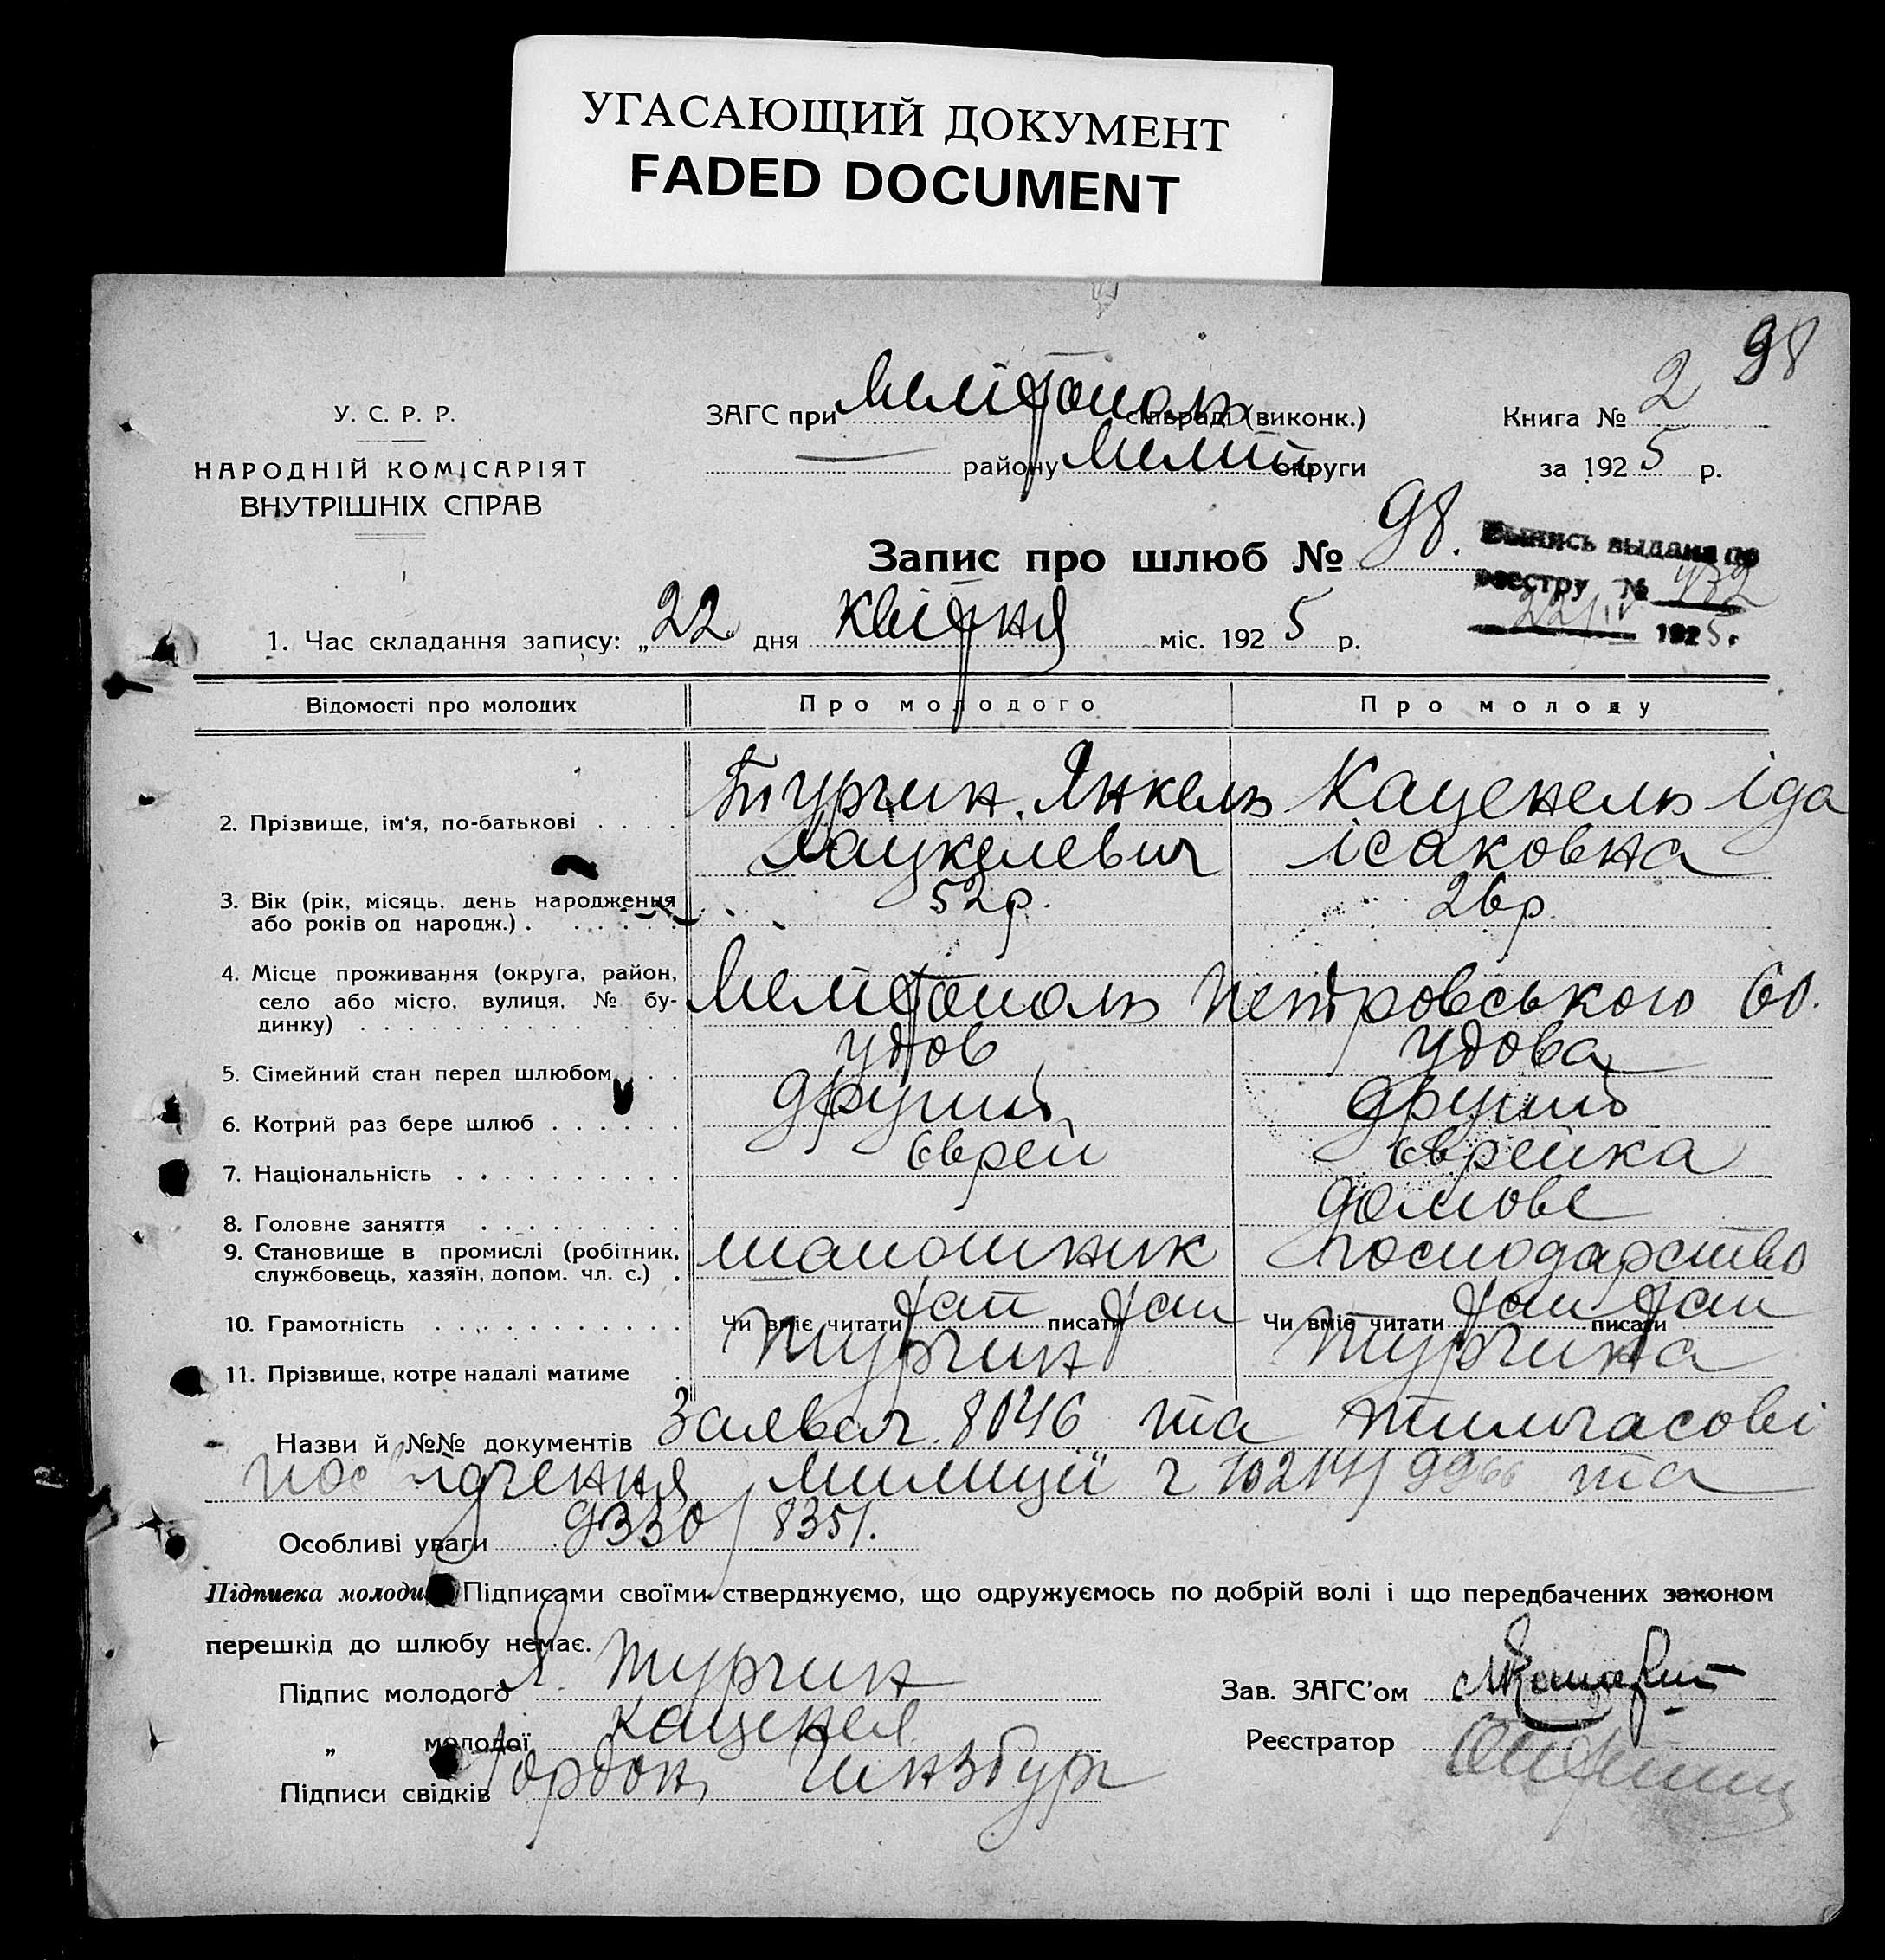 УГАСАЮЩИЙ ДОКУМЕНТ
FADED DOCUMENT
98
У. С. Р. Р.
НАРОДНІЙ КОМІСАРІЯТ
ВНУТРІШНІХ СПРАВ
ЗАГС при Мелітополь сільраді (виконк.)
району Меліт округи
Книга № 2
за 1925 р.
Запис про шлюб № 98.
Выпись выдана по
реестру № 432
22/IV 1925 г.
1. Час складання запису: „22 дня квітня міс. 1925 р.
Відомості про молодих Про молодого Про молоду
2. Прізвище, ім'я, по-батькові Тургин Янкель Каценель Іда
Хацкелевич Ісаковна
3. Вік (рік, місяць, день народження 52 р. 26 р.
або років од народж.)
4. Місце проживання (округа, район,
село або місто, вулиця, № бу- Мелітополь Петровського 60.
динку)
5. Сімейний стан перед шлюбом удов удова
6. Котрий раз бере шлюб другий другий
7. Національність Єврей Єврейка
8. Головне заняття домове
9. Становище в промислі (робітник, шапошник господарство
службовець, хазяїн, допом. чл. с.)
10. Грамотність Чи вміє читати так писати так Чи вміє читати так писати так
11. Прізвище, котре надалі матиме Тургин Тургина
Назви й №№ документів Заява ч. 8046 та тимчасові
посвідчення милиції ч 10214/9966 та
Особливі уваги 9330/8351.
Підписка молодих Підписами своїми стверджуємо, що одружуємось по добрій волі і що передбачених законом
перешкід до шлюбу немає.
Підпис молодого Я. Тургин
Зав. ЗАГС'ом
„ молодої Каценел
Реєстратор
Підписи свідків Гордон, Гинзбург